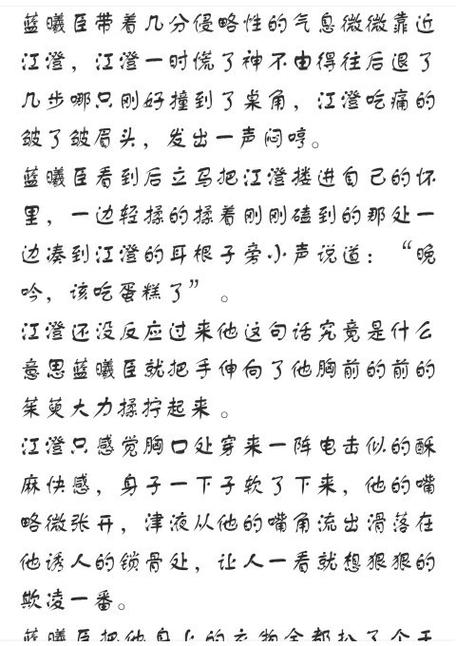 蓝曦臣带着几分侵略性的气息微微靠近
江澄，江澄一时慌了神不由得往后退了
几步哪只刚好撞到了桌角，江澄吃痛的
皱了皱眉头，发出一声闷哼。
蓝曦臣看到后立马把江澄搂进自己的怀
里，一边轻揉的揉着刚刚磕到的那处一
边凑到江澄的耳根子旁小声说道：“晚
吟，该吃蛋糕了”。
江澄还没反应过来他这句话究竟是什么
意思蓝曦臣就把手伸向了他胸前的前的
茱萸大力揉拧起来。
江澄只感觉胸口处穿来一阵电击似的酥
麻快感，身子一下子软了下来，他的嘴
略微张开，津液从他的嘴角流出滑落在
他诱人的锁骨处，让人一看就想狠狠的
欺凌一番。
蓝曦臣把他身上的衣物全都扒了个干